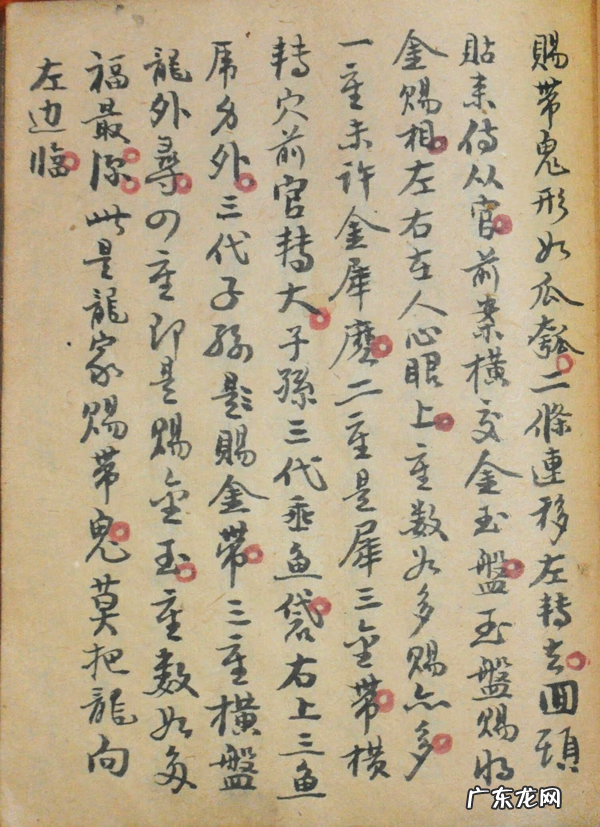 賜帶鬼形如瓜瓠二條連移左轉去回頭
貼來侍从官前案橫交金玉盤玉盤賜將
金賜相左右在人心眼上重数如多賜亦多
一重未许金犀磨二重是犀三金帶横
轉穴前官轉大子孫三代垂鱼袋右上三鱼
外三代子孫是賜金帶三重横盤
龍外尋四重即是賜金玉重数如多
福最深此是龍家賜帶鬼莫把龍向
左边临
广东龙网